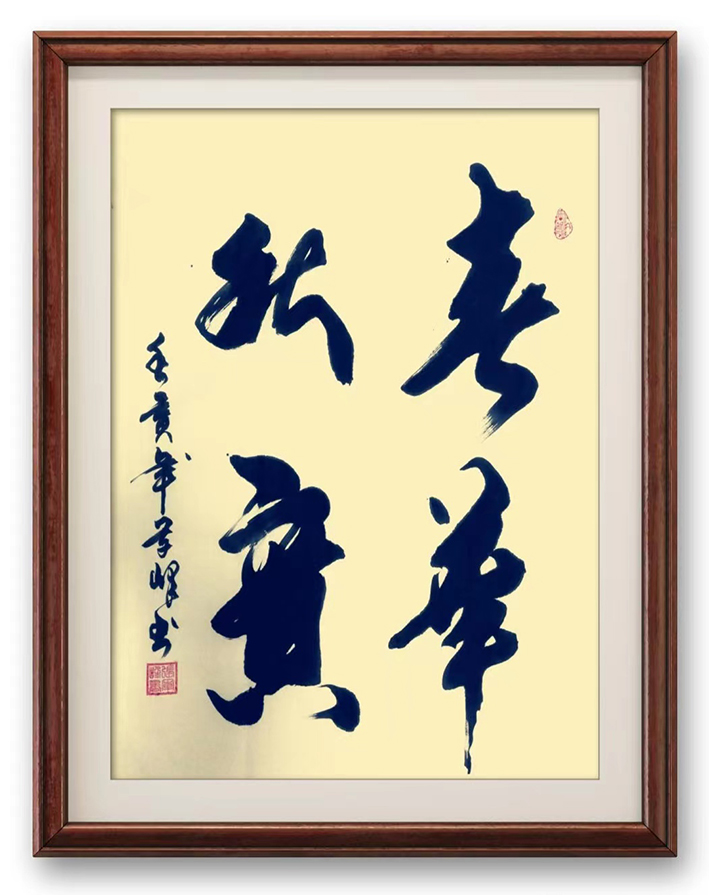 春華
秋實
壬寅年学峰书